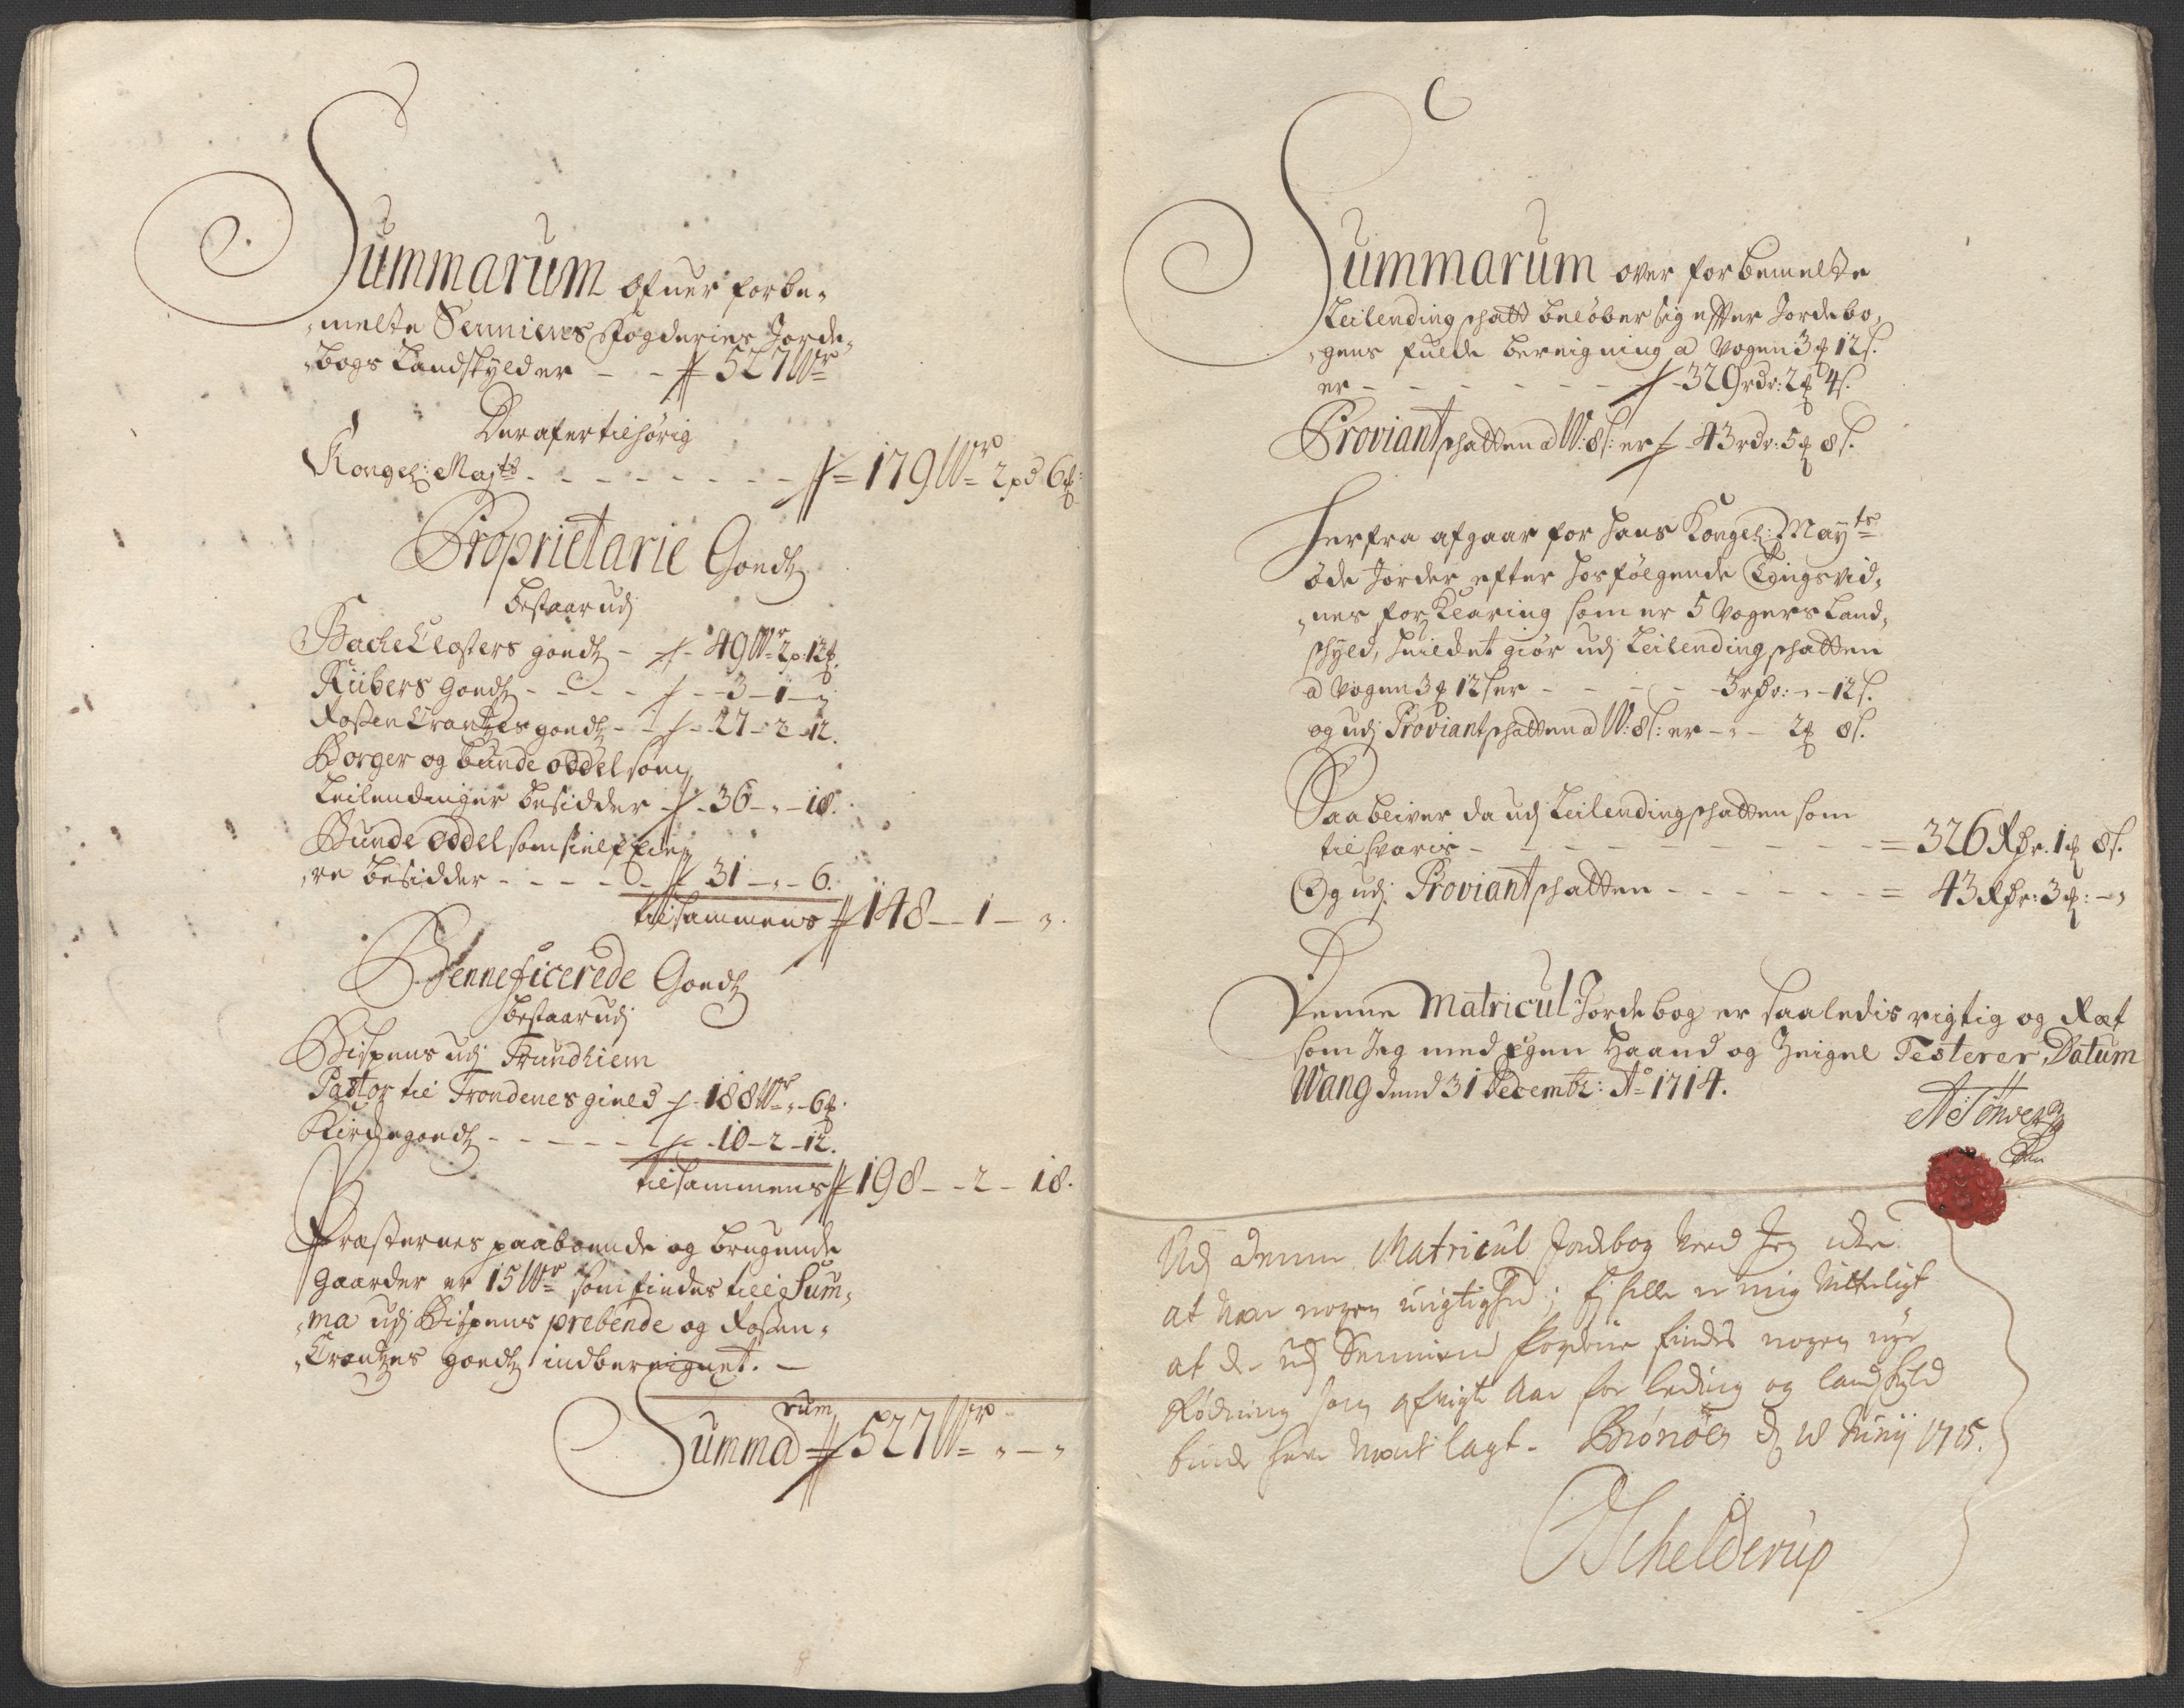 Summarum ofuer forbe-
melte Senniens Fogderies Jorde-
bogs Landskyld er - - 527 W
Der af er tilhørig
Kongel: Maj:ts - - - - - - - 179 W 2 pd 6 m
Proprietarie Goedtz
bestaar udj
Bache Closters goedtz - 49 W 2 p: 12 m.
Riibers Goedtz - - - - 3 - 1 - "
Rosen Crantzes goedtz - - 27 - 2 - 12.
Borger og bunde oddel som
Leilendinger besidder - 36 - " - 18.
Bunde oddel som sielf Eie-
re besidder - - - - - 31 - " - 6.
tilsammens 148 - 1 - ".
Benneficerede Goedtz
bestaar udj
Bispens udj Trundhiem
Pastor til Trondenes gield - 188 W " - 6 m.
Kirche goedtz - - - - - 10 - 2 - 12.
tilsammens 198 - - 2 - 18.
Præsternes paaboende og brugende
gaarder er 15 W som findes till Sum-
ma udj Bispens prebende og Rosen-
Crantzes goedtz indbereignet. -
Summarum 527 W " - "
Summarum over forbemelte
Leilending schatt beløber sig efter Jordebo-
gens fulde bereigning a Vogen 3 m 12 s.
er - - - - - - - 329 rdr: 2 m 4 s.
Proviant schatten a W: 8 s: er 43 rdr: 5 m 8 s.
Herfra afgaar for Hans Kongel: May:ts
øde Jorder efter hosfølgende Tingsvid-
nes forklaring som er 5 Vogers Land-
schyld, huilcket giør udj Leilending schatten
a Vogen 3 m 12 s er - - - - 3 rdr: - " - 12 s.
og udj Proviant schatten a W: 8 s: er - " - 2 m 8 s.
Saa bliver da udj Leilending schatten som
til svaris - - - - - - - - = 326 Rdr. 1 m 8 s.
Og udj Proviant schatten - - - - - - = 43 Rdr: 3 m: - "
Denne Matricul Jordebog er saaledis rigtig og Ræt
som Jeg med Egen Haand og Zeignet Testerer, Datum
Wang dend 31 Decembr: Ao 1714.
Udj denne Matricul Jordebog veed Jeg icke
at være nogen urigtighed; Ej heller er mig vitterligt
at der udj Sennien Fogderie findes nogen nye
Rødning som afvigte Aar for leding og landskyld
kunde hafve været lagt. Brønøen d 18 Junij 1715.
Schelderup